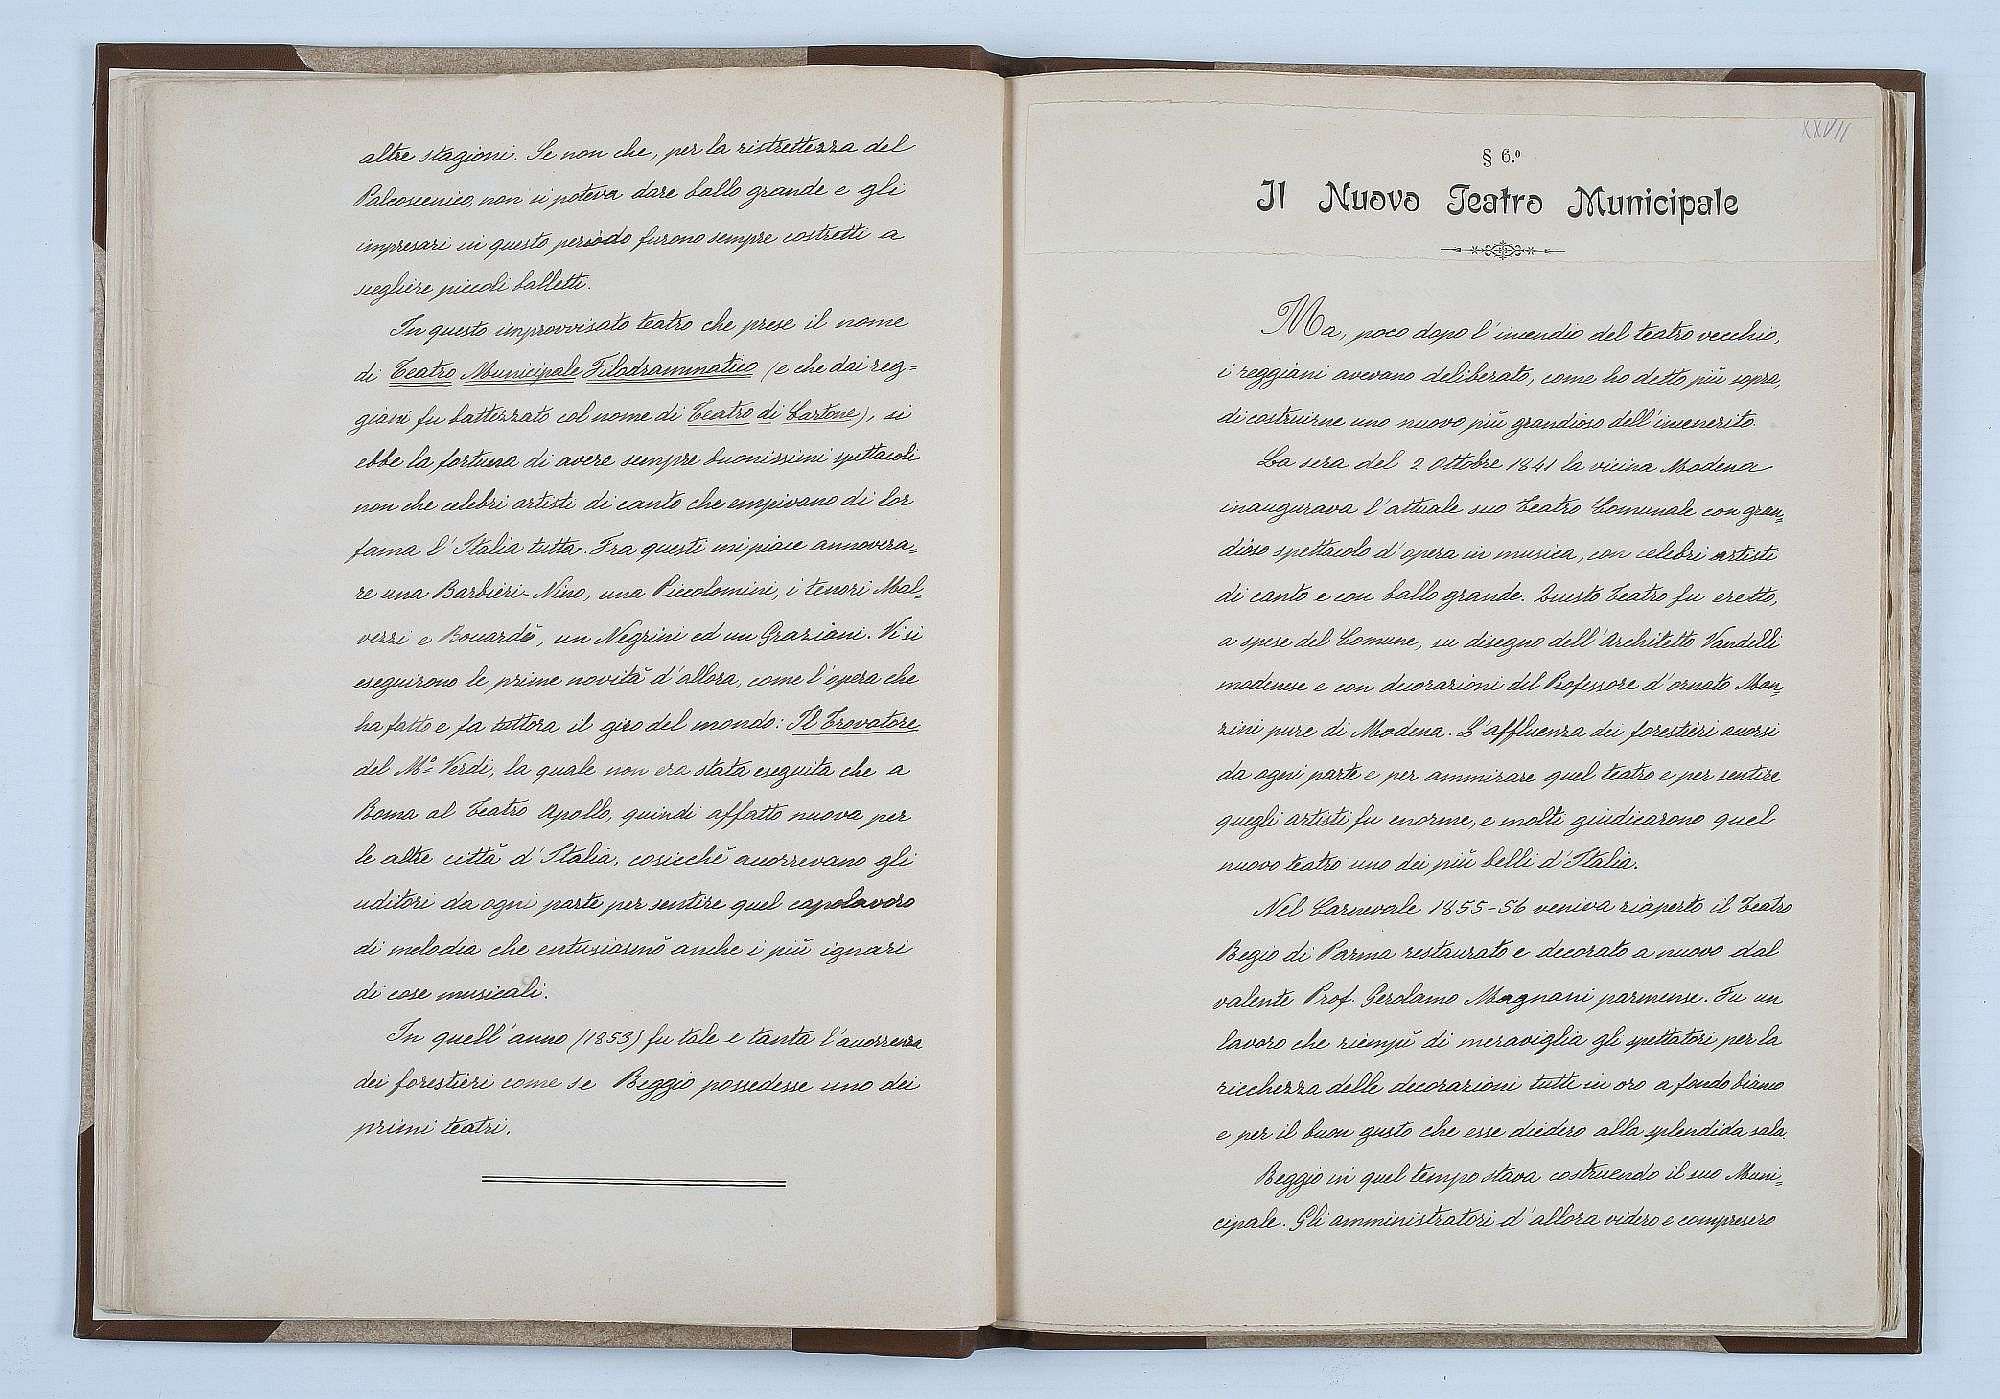 altre stagioni. Se non che, per la ristrettezza del
Palcoscenico, non si poteva dare ballo grande e gli
impresari in questo periodo furono sempre costretti a
scegliere piccoli balletti.
In questo improvvisato teatro che prese il nome
di Teatro Municipale Filodrammatico (e che dai reg=
giani fu battezzato col nome di Teatro di Cartone), si
ebbe la fortuna di avere sempre buonissimi spettacoli
non che celebri artisti di canto che empivano di lor
fama l'Italia tutta. Fra questi mi piace annovera=
re una Barbieri-Nino, una Piccolomini, i tenori Mal=
vezzi e Bouardè, un Negrini ed un Graziani. Vi si
eseguirono le prime novità d'allora, come l'opera che
ha fatto e fa tuttora il giro del mondo: Il Trovatore
del Mº Verdi, la quale non era stata eseguita che a
Roma al Teatro Apollo, quindi affatto nuova per
le altre città d'Italia, cosicchè accorrevano gli
uditori da ogni parte per sentire quel capolavoro
di melodia che entusiasmò anche i più ignari
di cose musicali.
In quell'anno (1853) fu tale e tanta l'accorrenza
dei forestieri come se Reggio possedesse uno dei
primi teatri.
XXVII
§ 6.º
Il Nuovo Teatro Municipale
Ma, poco dopo l'incendio del teatro vecchio,
i reggiani avevano deliberato, come ho detto più sopra,
di costruirne uno nuovo più grandioso dell'incenerito.
La sera del 2 Ottobre 1841 la vicina Modena
inaugurava l'attuale suo Teatro Comunale con gran=
dioso spettacolo d'opera in musica, con celebri artisti
di canto e con ballo grande. Questo Teatro fu eretto,
a spese del Comune, su disegno dell'Architetto Vandelli
modenese e con decorazioni del Professore d'ornato Man=
zini pure di Modena. L'affluenza dei forestieri accorsi
da ogni parte e per ammirare quel teatro e per sentire
quegli artisti fu enorme, e molti giudicarono quel
nuovo teatro uno dei più belli d'Italia.
Nel Carnevale 1855-56 veniva riaperto il Teatro
Regio di Parma restaurato e decorato a nuovo dal
valente Prof. Gerolamo Magnani parmense. Fu un
lavoro che riempì di meraviglia gli spettatori per la
ricchezza delle decorazioni tutti in oro a fondo bianco
e per il buon gusto che esse diedero alla splendida sala.
Reggio in quel tempo stava costruendo il suo Muni=
cipale. Gli amministratori d'allora videro e compresero